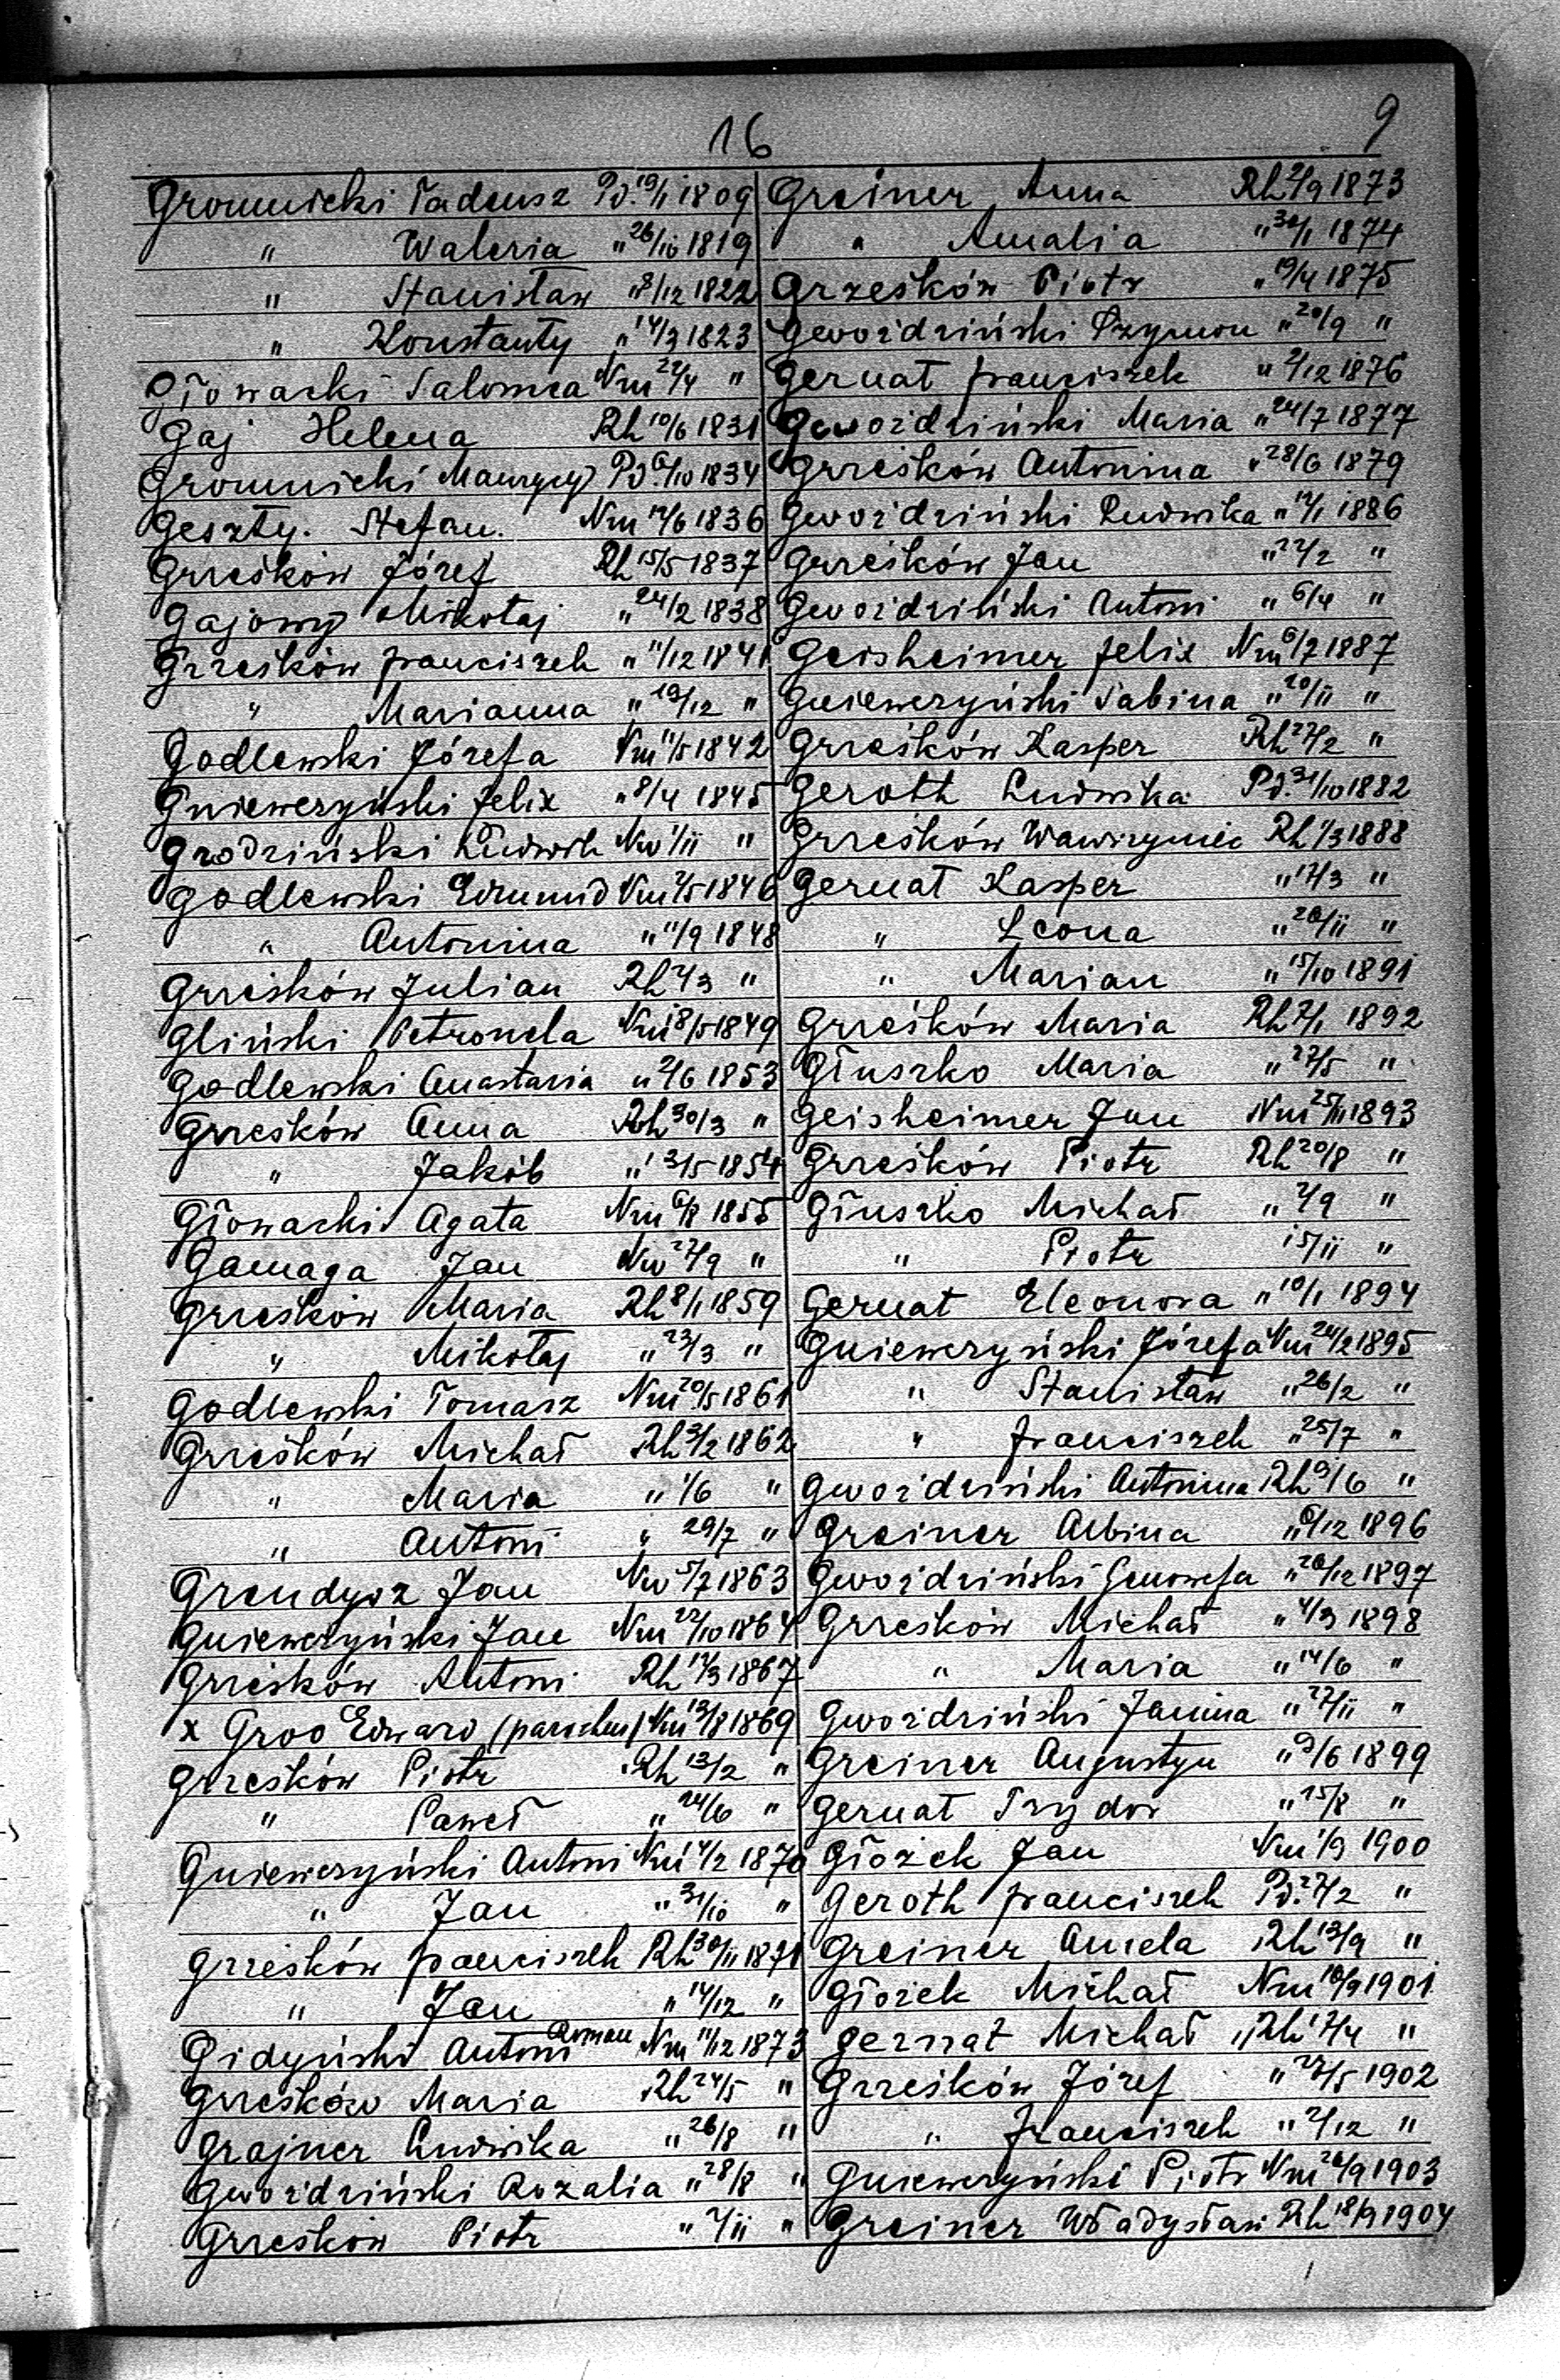 16
9
Gromnicki Tadeusz Pd. 19/1 1809
" Waleria " 26/10 1819
" Stanisław " 8/12 1822
" Konstanty " 14/3 1823
Głowacki Salomea Nm 22/4 "
Gaj Helena Rh 10/6 1831
Gromnicki Maurycy Pd. 6/10 1834
Geszty. Stefan. Nm 12/6 1836
Grześków Józef Rh 15/5 1837
Gajowy Mikołaj " 24/2 1838
Grześków Franciszek " 11/12 1841
" Marianna " 19/12 "
Godlewski Józefa Nm 11/5 1842
Gnieweryński Felix " 8/4 1845
Grodziński Ludwik Nw 1/11 "
Godlewski Edmund Nm 2/5 1846
" Antonina " 11/9 1848
Grześków Julian Rh 2/3 "
Gliński Petronela Nm 18/5 1849
Godlewski Anastazia " 2/6 1853
Grześków Anna Rh 30/3 "
" Jakób " 13/5 1854
Głowacki Agata Nm 6/8 1855
Gamaga Jan Nw 27/9 "
Grześków Maria Rh 8/1 1859
" Mikołaj " 23/3 "
Godlewski Tomasz Nm 20/5 1861
Grześków Michał Rh 3/2 1862
" Maria " 1/6 "
" Antoni " 29/7 "
Grendysz Jan Nw 5/7 1863
Gnieweryński Jan Nm 22/10 1864
Grześków Antoni Rh 12/3 1867
x Groo Edward (parochus) Nm 13/8 1869
Grześków Piotr Rh 13/2 "
" Paweł " 24/6 "
Gnieweryński Antoni Nm 14/2 1870
" Jan " 31/10 "
Grześków Franciszek Rh 30/11 1871
" Jan " 14/12 "
Gidyński Antoni Roman Nm 11/12 1873
Grześków Maria Rh 24/5 "
Grajner Ludwika " 26/8 "
Gwoździński Rozalia " 28/8 "
Grześków Piotr " 2/11 "
Greiner Anna Rh 2/9 1873
" Amalia " 30/1 1874
Grześków Piotr " 19/4 1875
Gwoździński Szymon " 20/9 "
Gernat Franciszek " 2/12 1876
Gwoździński Maria " 24/7 1877
Grześków Antonina " 28/6 1879
Gwoździński Ludwika " 12/1 1886
Grześków Jan " 22/2 "
Gwoździński Antoni " 6/4 "
Geisheimer Felix Nm 6/7 1887
Gnieweryński Sabina " 20/11 "
Grześków Kasper Rh 27/2 "
Geroth Ludwika Pd. 31/10 1882
Grześków Wawrzyniec Rh 1/3 1888
Gernat Kasper " 17/3 "
" Leona " 20/11 "
" Marian " 15/10 1891
Grześków Maria Rh 2/1 1892
Głuszko Maria " 27/5 "
Geisheimer Jan Nm 25/11 1893
Grześków Piotr Rh 20/8 "
Głuszko Michał " 2/9 "
" Piotr 15/11 "
Gernat Eleonora " 10/1 1894
Gnieweryński Józefa Nm 24/2 1895
" Stanisław " 26/2 "
" Franciszek " 25/7 "
Gwoździński Antonina Rh 9/6 "
Greiner Albina " 6/12 1896
Gwoździński Genowefa " 20/12 1897
Grześków Michał " 4/3 1898
" Maria " 14/6 "
Gwoździński Janina " 27/11 "
Greiner Augustyn " 9/6 1899
Gernat Izydor " 15/8 "
Głożek Jan Nm 1/9 1900
Geroth Franciszek Pd. 27/2 "
Greiner Aniela Rh 13/9 "
Głożek Michał Nm 10/9 1901
Gernat Michał " Rh 12/4 "
Grześków Józef " 27/5 1902
" Franciszek " 2/12 "
Gnieweryński Piotr Nm 26/9 1903
Greiner Władysław Rh 18/9 1904